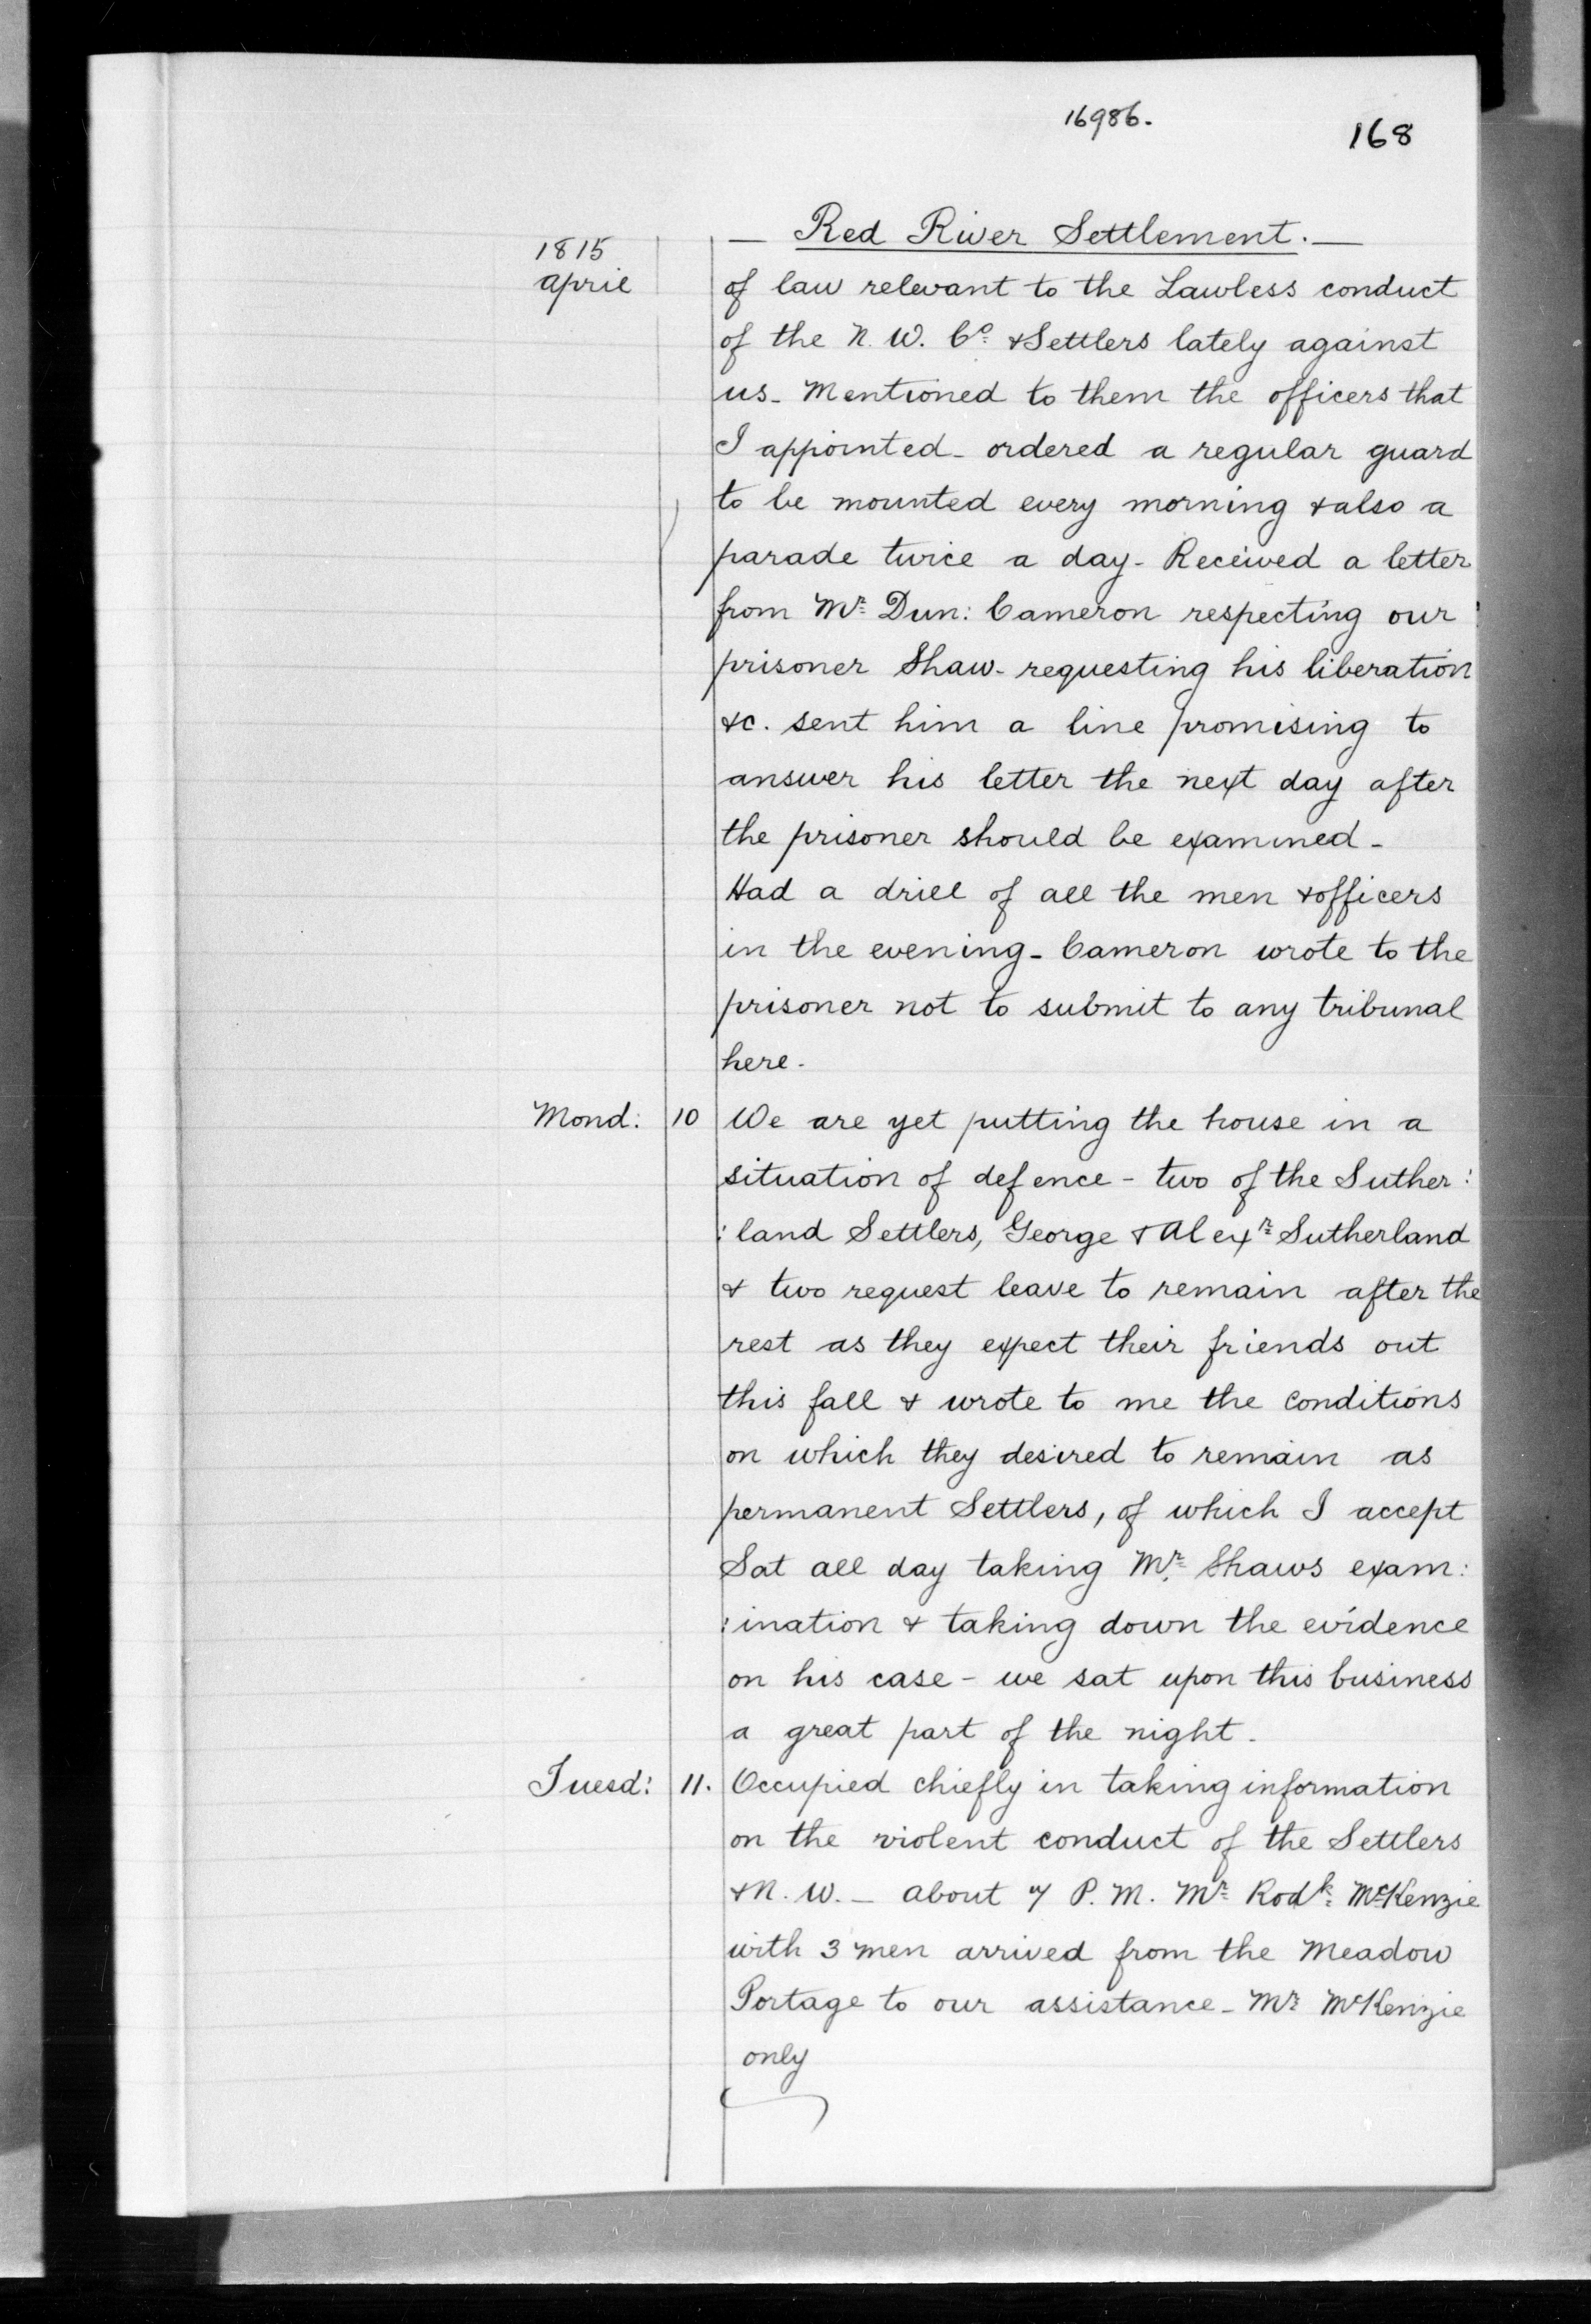 16986.
168
— Red River Settlement. —
1815
April
of law relevant to the Lawless conduct
of the N. W. Co. & Settlers lately against
us - Mentioned to them the officers that
I appointed - ordered a regular guard
to be mounted every morning & also a
parade twice a day - Received a letter
from Mr. Dun: Cameron respecting our
prisoner Shaw - requesting his liberation
&c. sent him a line promising to
answer his letter the next day after
the prisoner should be examined -
Had a drill of all the men & officers
in the evening - Cameron wrote to the
prisoner not to submit to any tribunal
here -
Mond: 10 We are yet putting the house in a
situation of defence - two of the Suther:
:land Settlers, George & Alexr. Sutherland
& two request leave to remain after the
rest as they expect their friends out
this fall & wrote to me the conditions
on which they desired to remain as
permanent Settlers, of which I accept
Sat all day taking Mr. Shaws exam:
:ination & taking down the evidence
on his case - we sat upon this business
a great part of the night -
Tuesd: 11. Occupied chiefly in taking information
on the violent conduct of the Settlers
& N. W. - about 7 P. M. Mr. Rodk. McKenzie
with 3 men arrived from the Meadow
Portage to our assistance - Mr. McKenzie
only